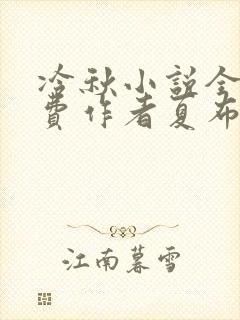 冷秋小説全
費作者夏布
江南暮雪